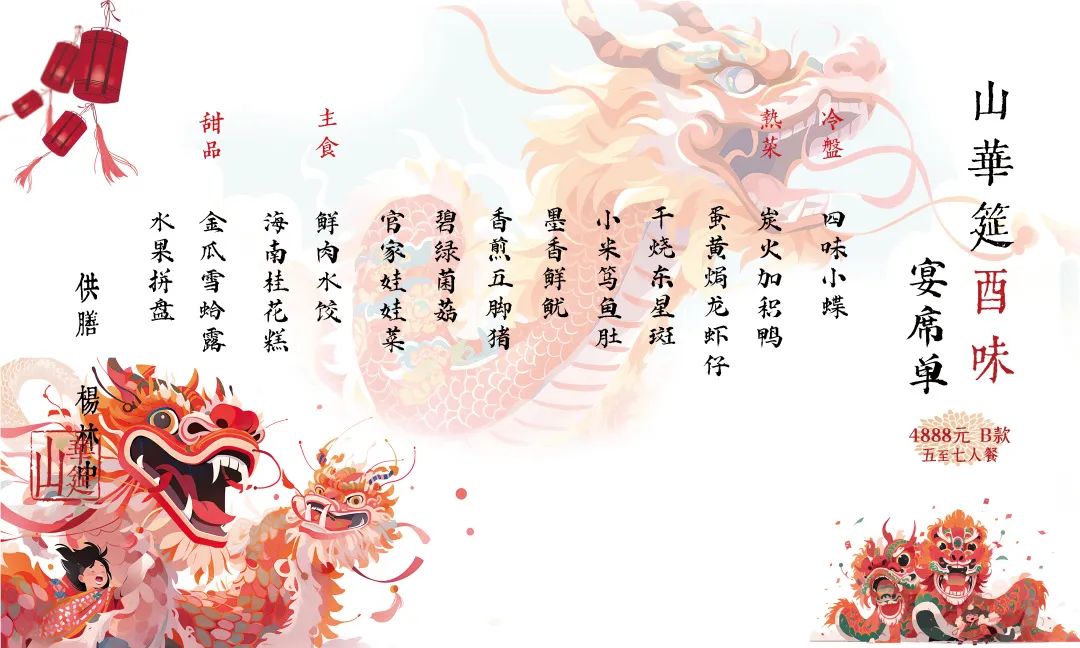 山華筵酉味
宴席单
4888元 B款
五至七人餐
冷盤
四味小蝶
熱菜
炭火加积鸭
蛋黄焗龙虾仔
干烧东星斑
小米笃鱼肚
墨香鲜鱿
香煎五脚猪
碧绿菌菇
官家娃娃菜
主食
鲜肉水饺
海南桂花糕
甜品
金瓜雪蛤露
水果拼盘
供膳 楊林冲
山華筵